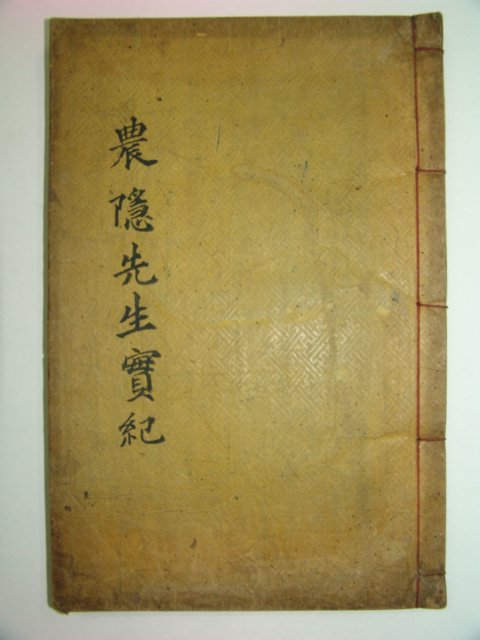 農隱先生實紀